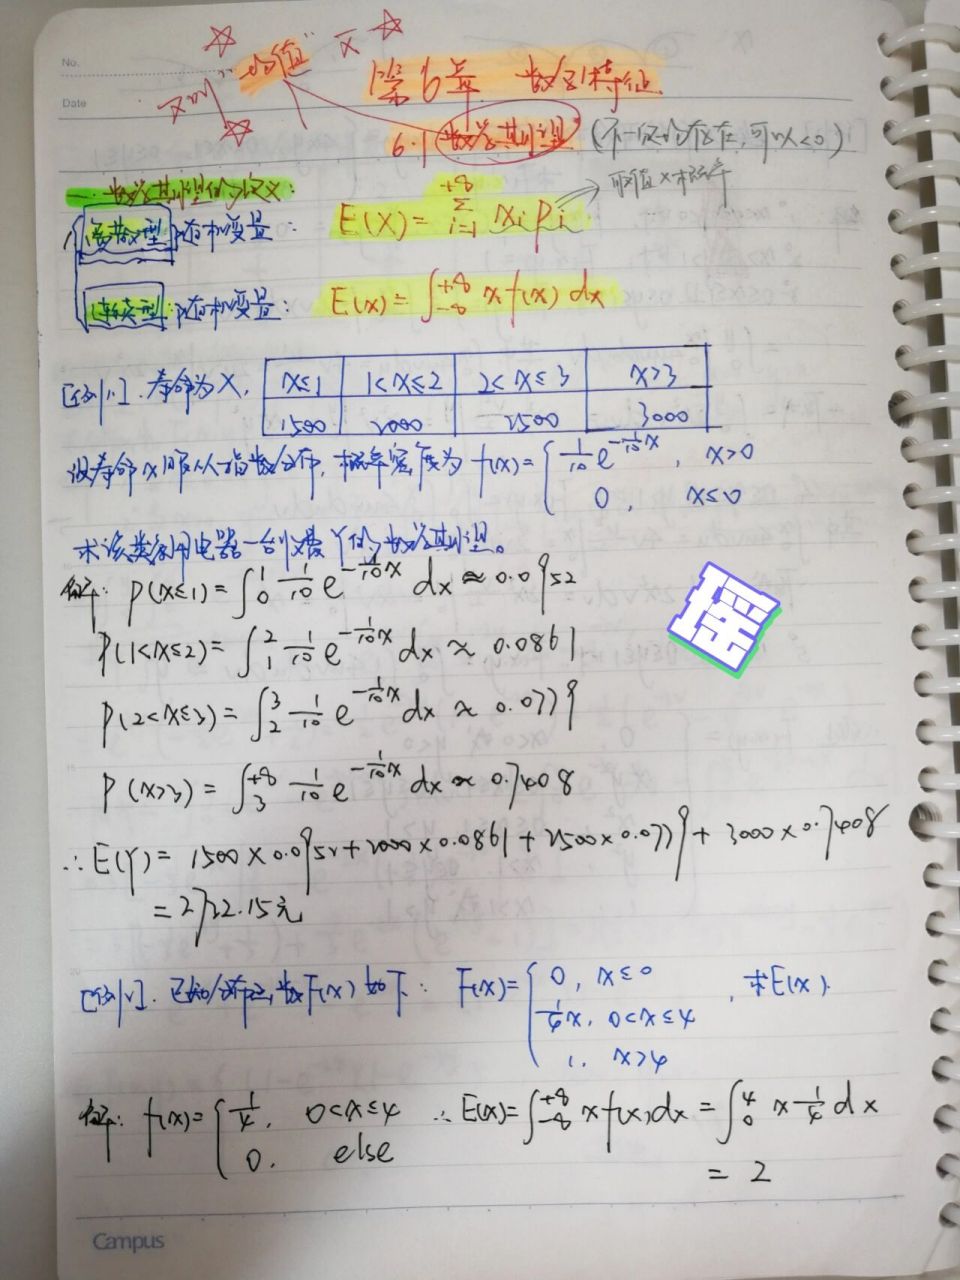 No.
Date
又叫"均值" x̄
第6章 数字特征
6.1 数学期望 (不一定均存在,可以<0)
一、数学期望的定义:
离散型随机变量: E(X)=∑_{i=1}^{+∞} xᵢpᵢ → 取值×概率
连续型随机变量: E(X)=∫_{-∞}^{+∞} x f(x) dx
[例1]. 寿命为X,
X≤1 1<X≤2 2<X≤3 X>3
1500 2000 2500 3000
设寿命X服从指数分布, 概率密度为 f(x)={ 1/10 e^{-1/10 x}, x>0
0, x≤0
求该类家用电器一台收费Y的数学期望。
解: P(X≤1)=∫_0^1 1/10 e^{-1/10 x} dx≈0.0952
P(1<X≤2)=∫_1^2 1/10 e^{-1/10 x} dx≈0.0861
P(2<X≤3)=∫_2^3 1/10 e^{-1/10 x} dx≈0.0779
P(X>3)=∫_3^{+∞} 1/10 e^{-1/10 x} dx≈0.7408
∴E(Y)=1500×0.0952+2000×0.0861+2500×0.0779+3000×0.7408
=2732.15元
瑶
[例2]. 已知分布函数F(x)如下: F(x)={ 0, x≤0
1/4 x, 0<x≤4 , 求E(X).
1, x>4
解: f(x)={ 1/4, 0<x≤4 ∴E(X)=∫_{-∞}^{+∞} x f(x)dx=∫_0^4 x 1/4 dx
0, else
=2
Campus